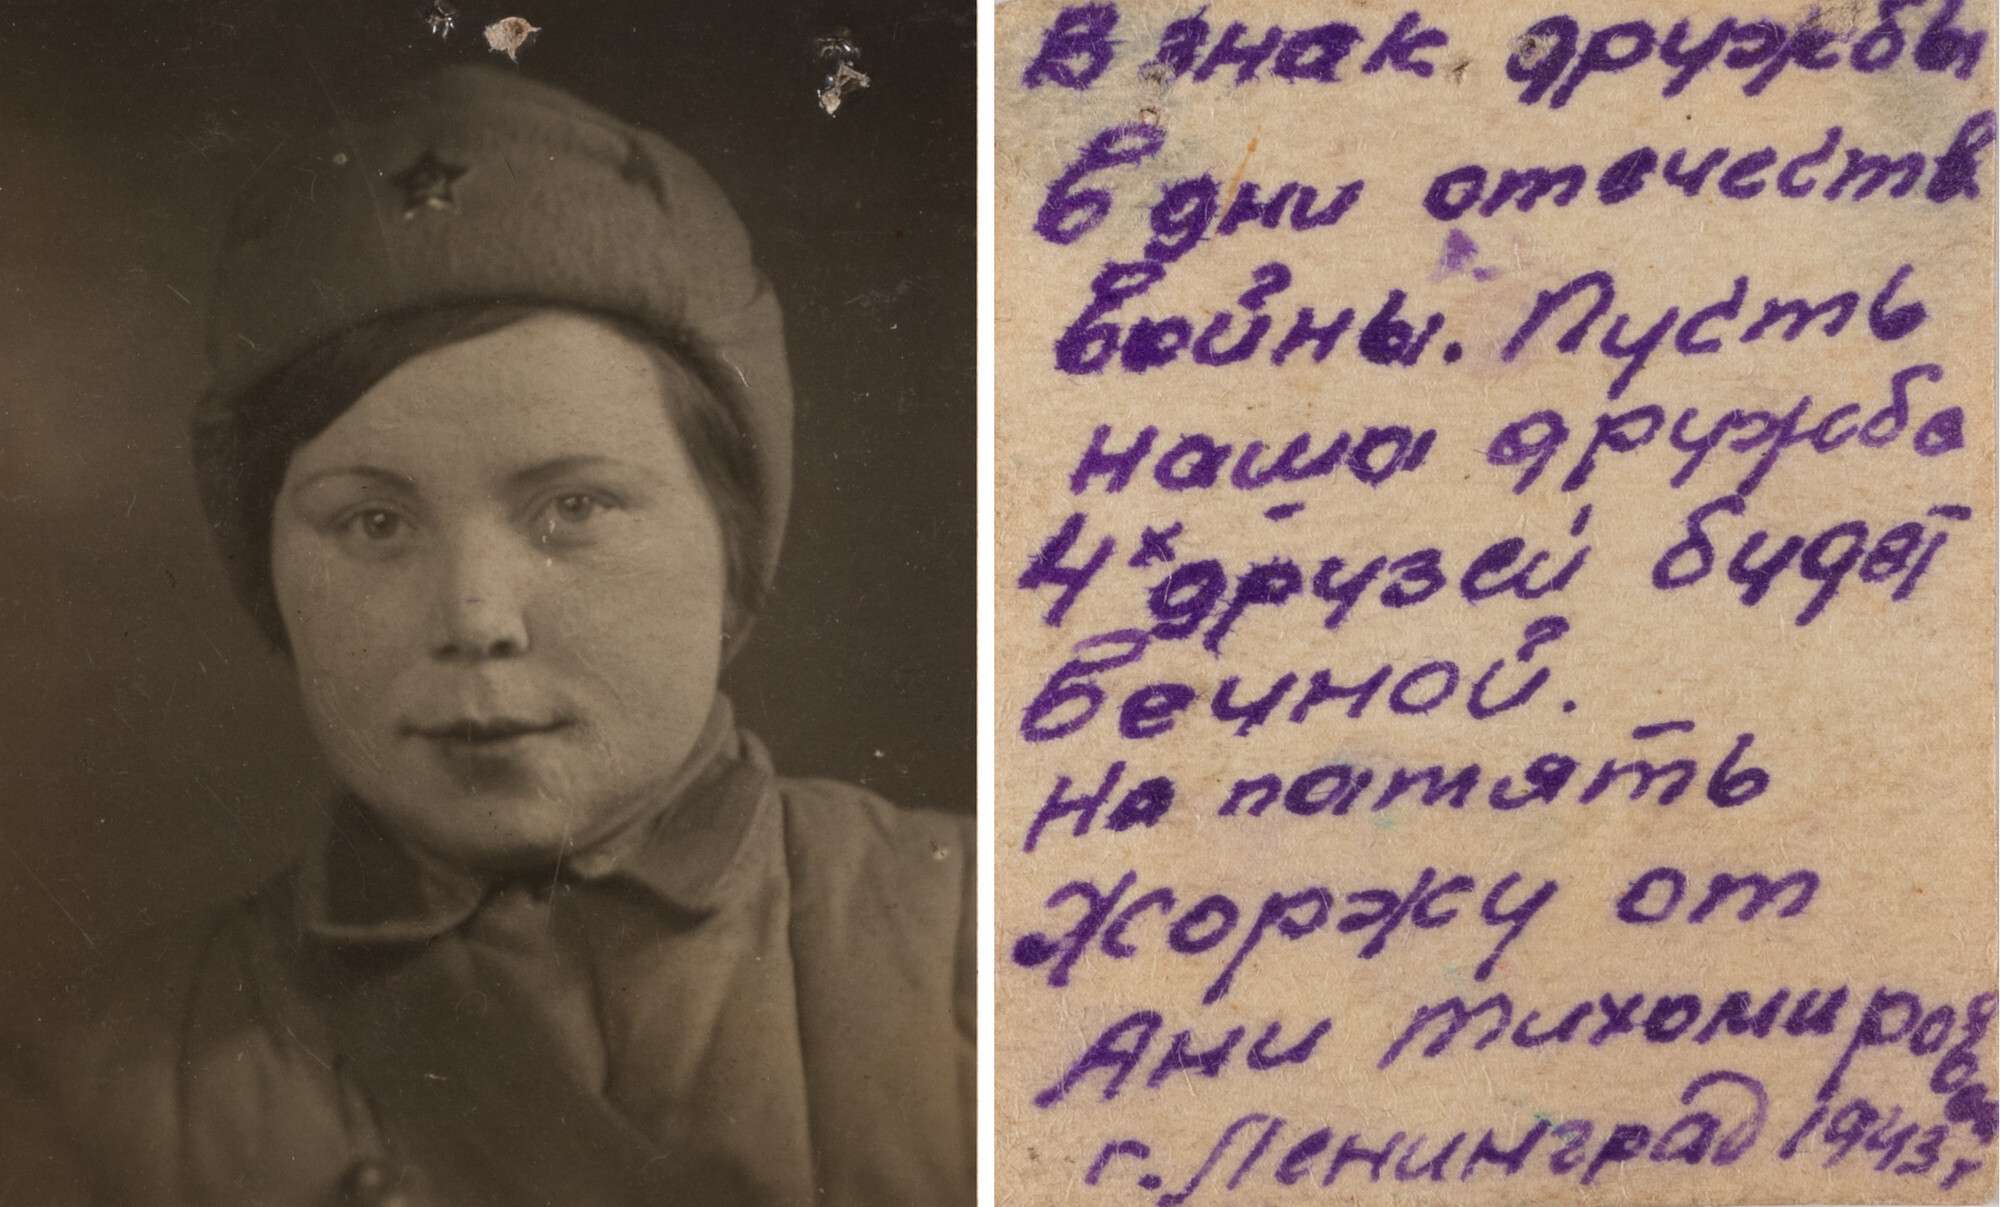 В знак дружбы
в дни отечеств
войны. Пусть
наша дружба
4х друзей будет
вечной.
На память
Жоржу от
Ани Тихомировой
г. Ленинград 1943 г